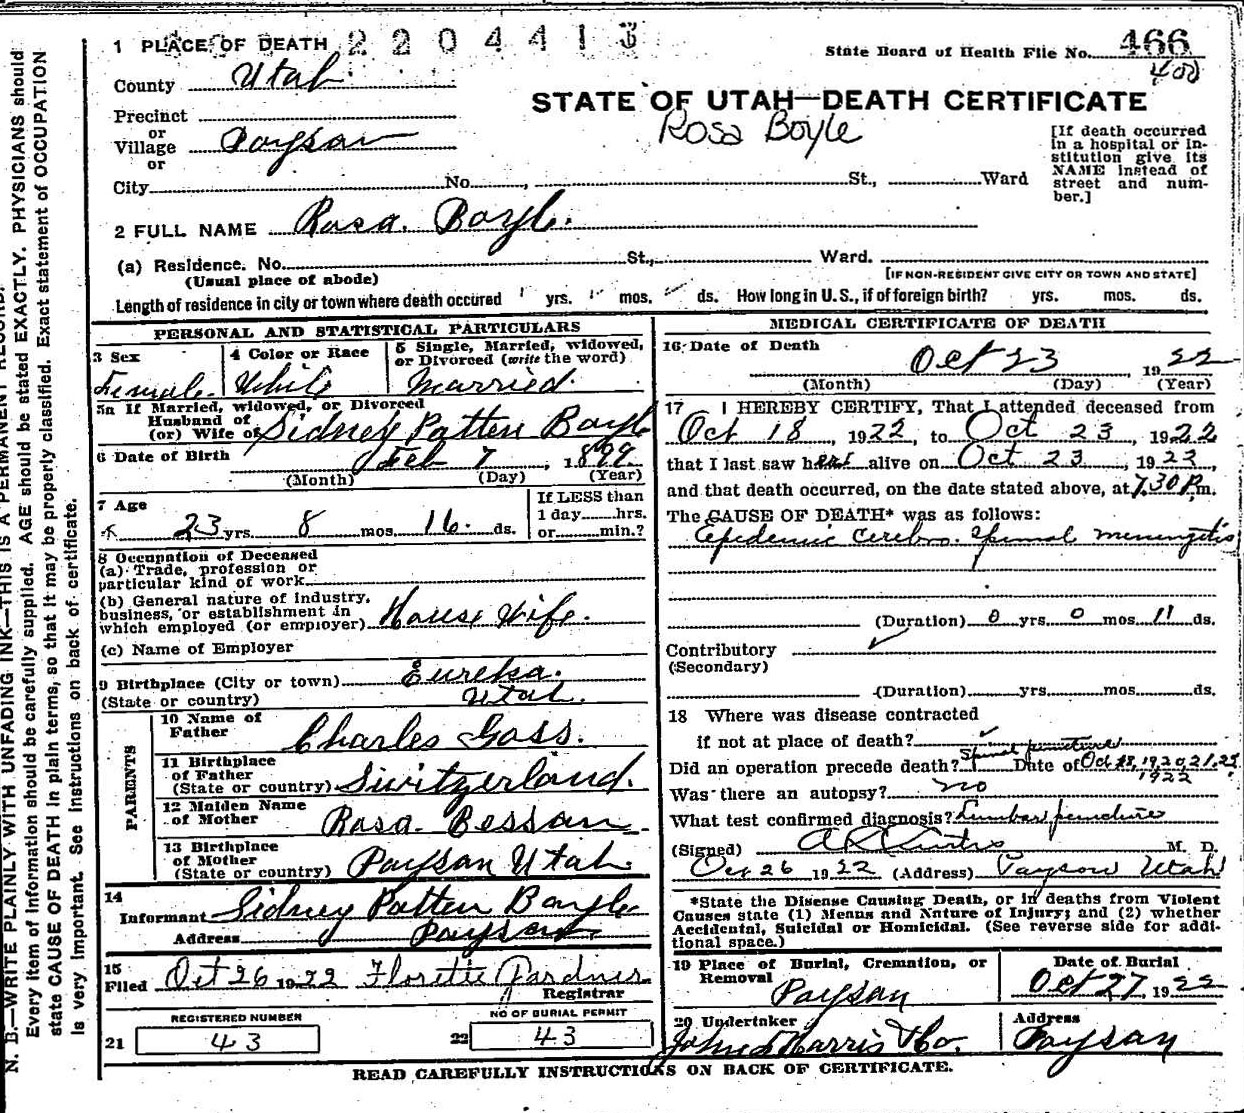 1 PLACE OF DEATH 2204413
State Board of Health File No. 466
400
County Utah
STATE OF UTAH—DEATH CERTIFICATE
Rosa Boyle
Precinct
or
Village Payson
or
City No. , St., Ward
[If death occurred in a hospital or institution give its NAME instead of street and number.]
2 FULL NAME Rosa. Boyle.
(a) Residence. No. St., Ward.
(Usual place of abode) [IF NON-RESIDENT GIVE CITY OR TOWN AND STATE]
Length of residence in city or town where death occured yrs. mos. ds. How long in U. S., if of foreign birth? yrs. mos. ds.
PERSONAL AND STATISTICAL PARTICULARS
3 Sex Female.
4 Color or Race White
5 Single, Married, widowed, or Divorced (write the word) Married.
5a If Married, widowed, or Divorced
Husband of
(or) Wife of Sidney Patten Boyle
6 Date of Birth Feb 7, 1899
(Month) (Day) (Year)
7 Age 23 yrs. 8 mos. 16. ds.
If LESS than
1 day hrs.
or min.?
8 Occupation of Deceased
(a) Trade, profession or
particular kind of work
(b) General nature of industry,
business, or establishment in
which employed (or employer) House Wife.
(c) Name of Employer
9 Birthplace (City or town) Eureka.
(State or country) Utah.
PARENTS
10 Name of Father Charles Gass.
11 Birthplace of Father
(State or country) Switzerland.
12 Maiden Name of Mother Rosa. Bessan
13 Birthplace of Mother
(State or country) Payson Utah
14
Informant Sidney Patten Boyle
Address Payson
15
Filed Oct 26 1922 Florette Gardner
Registrar
REGISTERED NUMBER
21 43
NO OF BURIAL PERMIT
22 43
MEDICAL CERTIFICATE OF DEATH
16 Date of Death Oct 23 1922
(Month) (Day) (Year)
17 I HEREBY CERTIFY, That I attended deceased from
Oct 18, 1922, to Oct 23, 1922
that I last saw her alive on Oct 23, 1922,
and that death occurred, on the date stated above, at 7.30 P.m.
The CAUSE OF DEATH* was as follows:
Epidemic Cerebro. Spinal meningitis
(Duration) 0 yrs. 0 mos. 11 ds.
Contributory
(Secondary)
(Duration) yrs. mos. ds.
18 Where was disease contracted
if not at place of death?
Did an operation precede death? Spinal puncture Date of Oct 18, 19, 20, 21, 22
1922
Was there an autopsy? no
What test confirmed diagnosis? Lumbar puncture
(Signed) A R Curtis M. D.
Oct 26 1922 (Address) Payson Utah
*State the Disease Causing Death, or in deaths from Violent
Causes state (1) Means and Nature of Injury; and (2) whether
Accidental, Suicidal or Homicidal. (See reverse side for additional space.)
19 Place of Burial, Cremation, or Removal Payson
Date of Burial
Oct 27, 1922
20 Undertaker
Address Payson
READ CAREFULLY INSTRUCTIONS ON BACK OF CERTIFICATE.
N. B.—WRITE PLAINLY WITH UNFADING INK—THIS IS A PERMANENT RECORD.
Every item of information should be carefully supplied. AGE should be stated EXACTLY. PHYSICIANS should
state CAUSE OF DEATH in plain terms, so that it may be properly classified. Exact statement of OCCUPATION
is very important. See instructions on back of certificate.